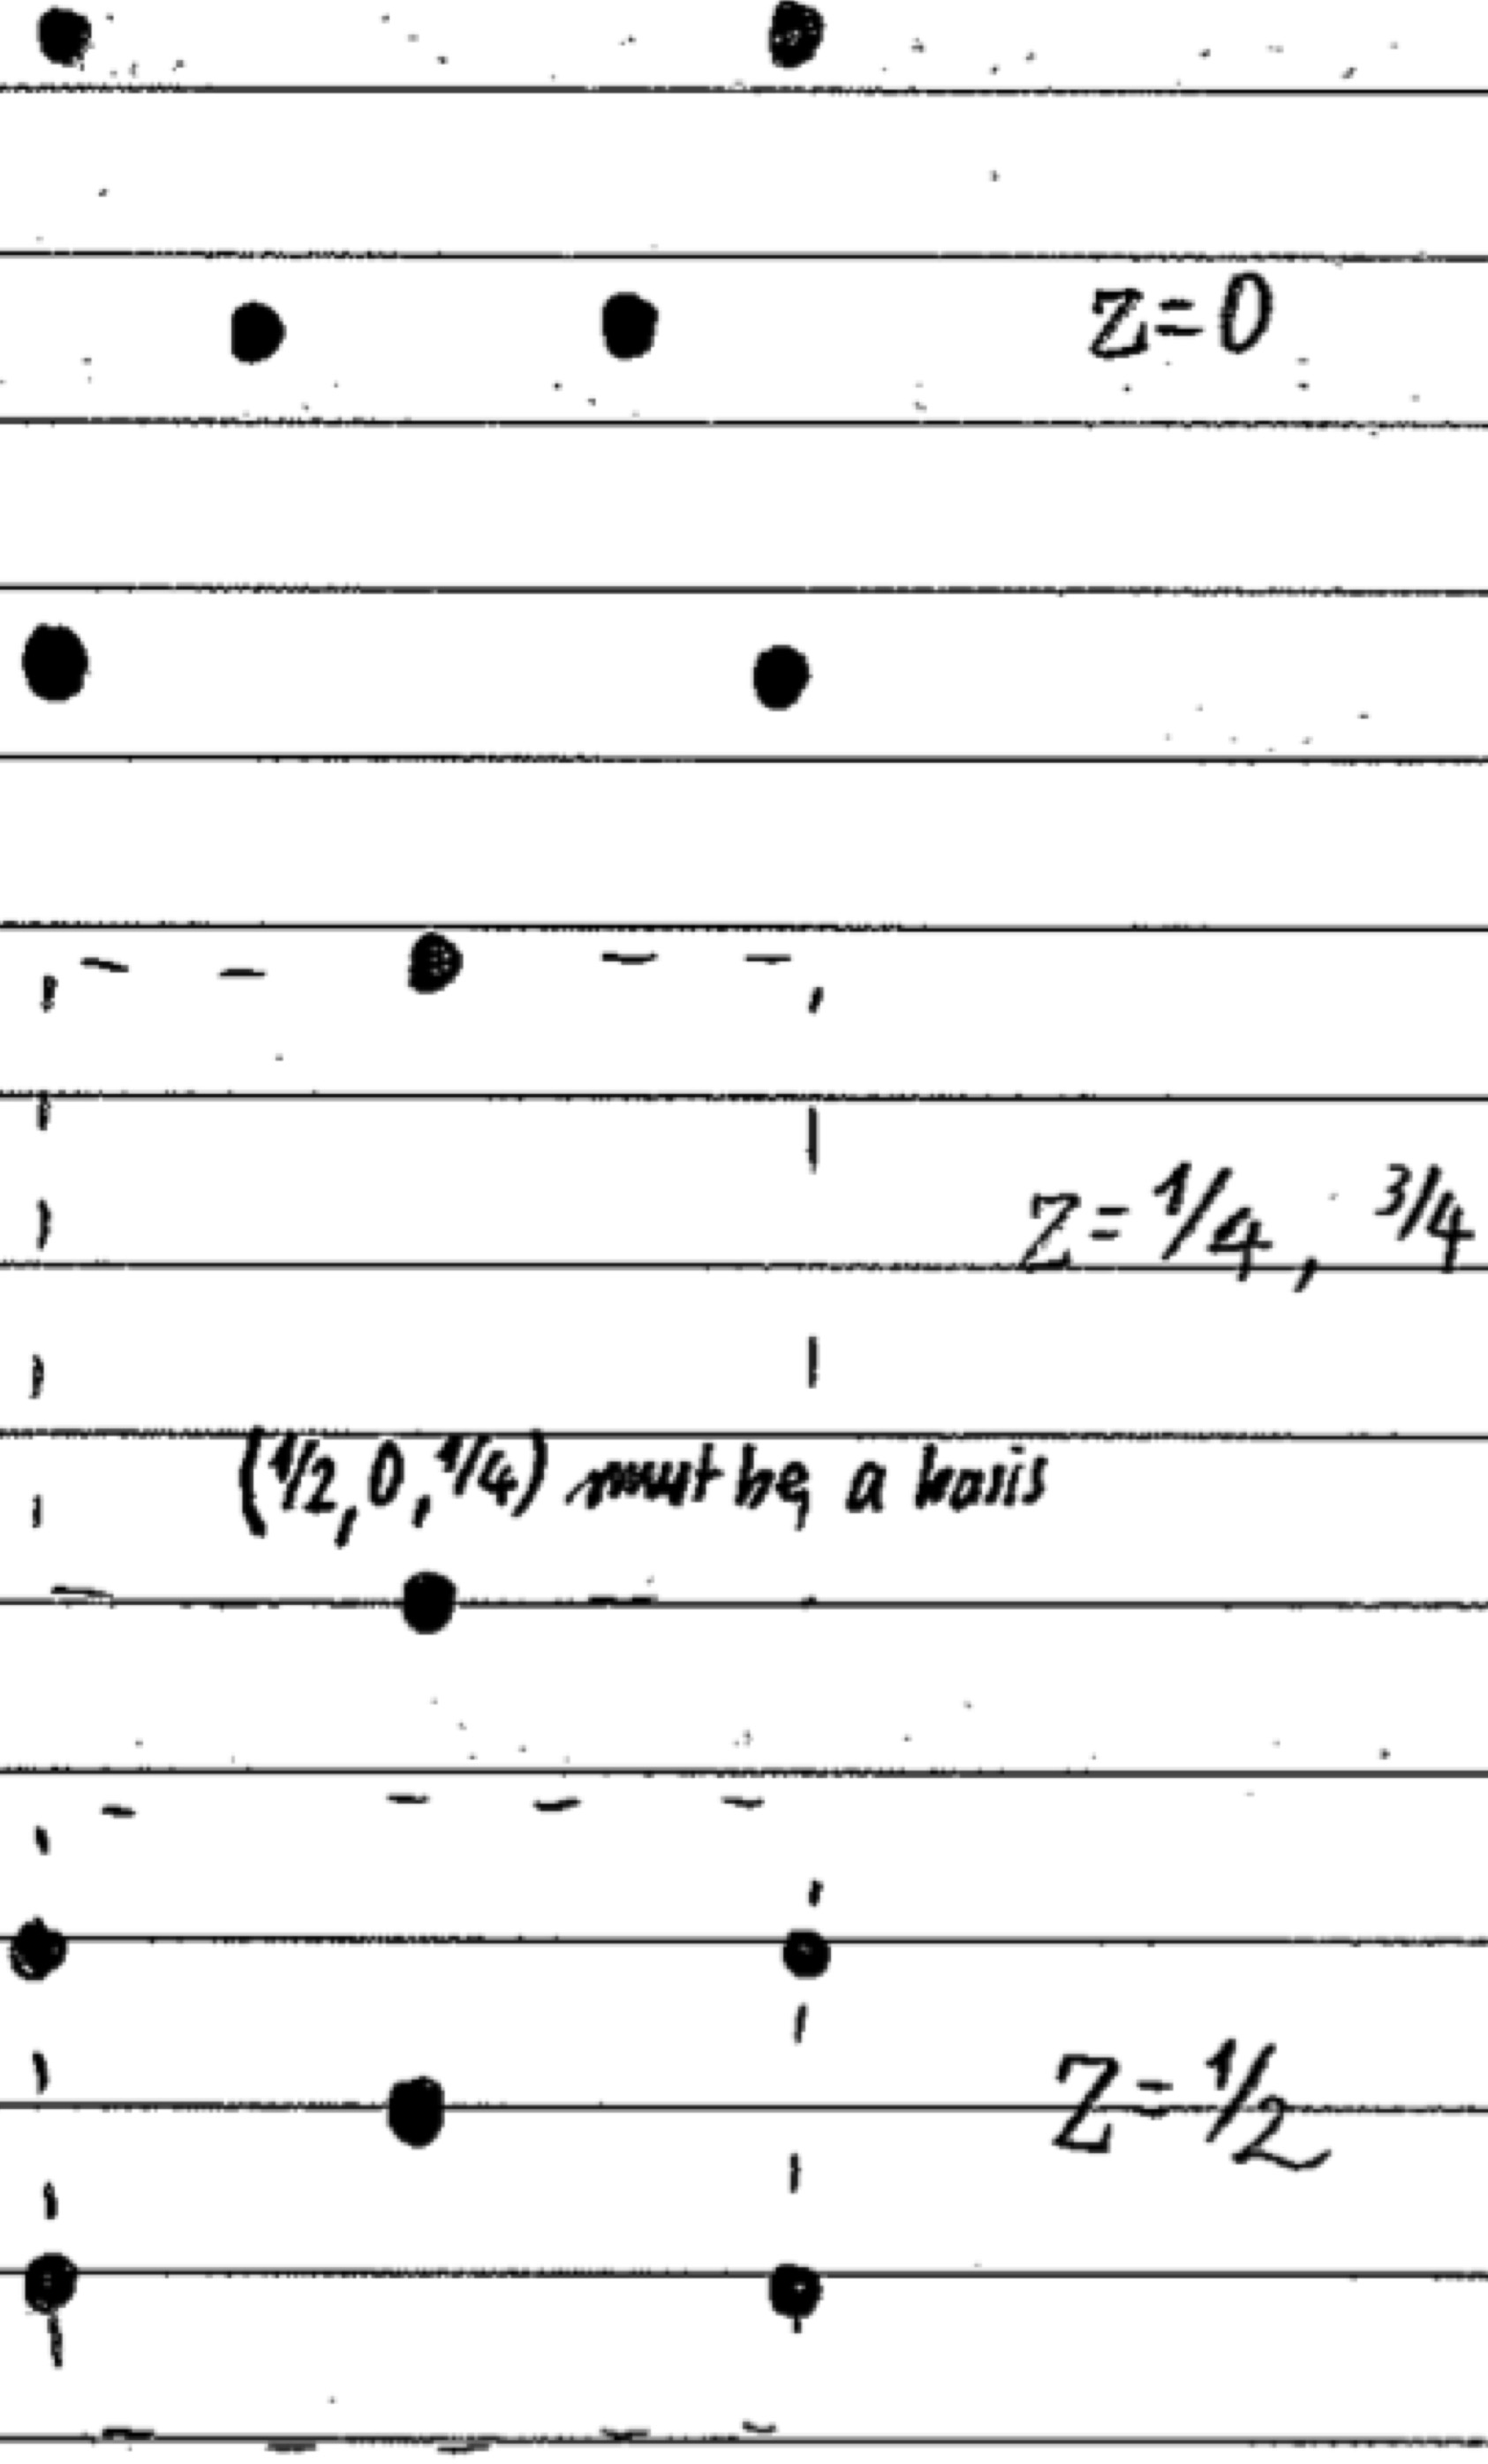 Z=0
Z=1/4, 3/4
(1/2, 0, 1/4) must be a basis
Z=1/2